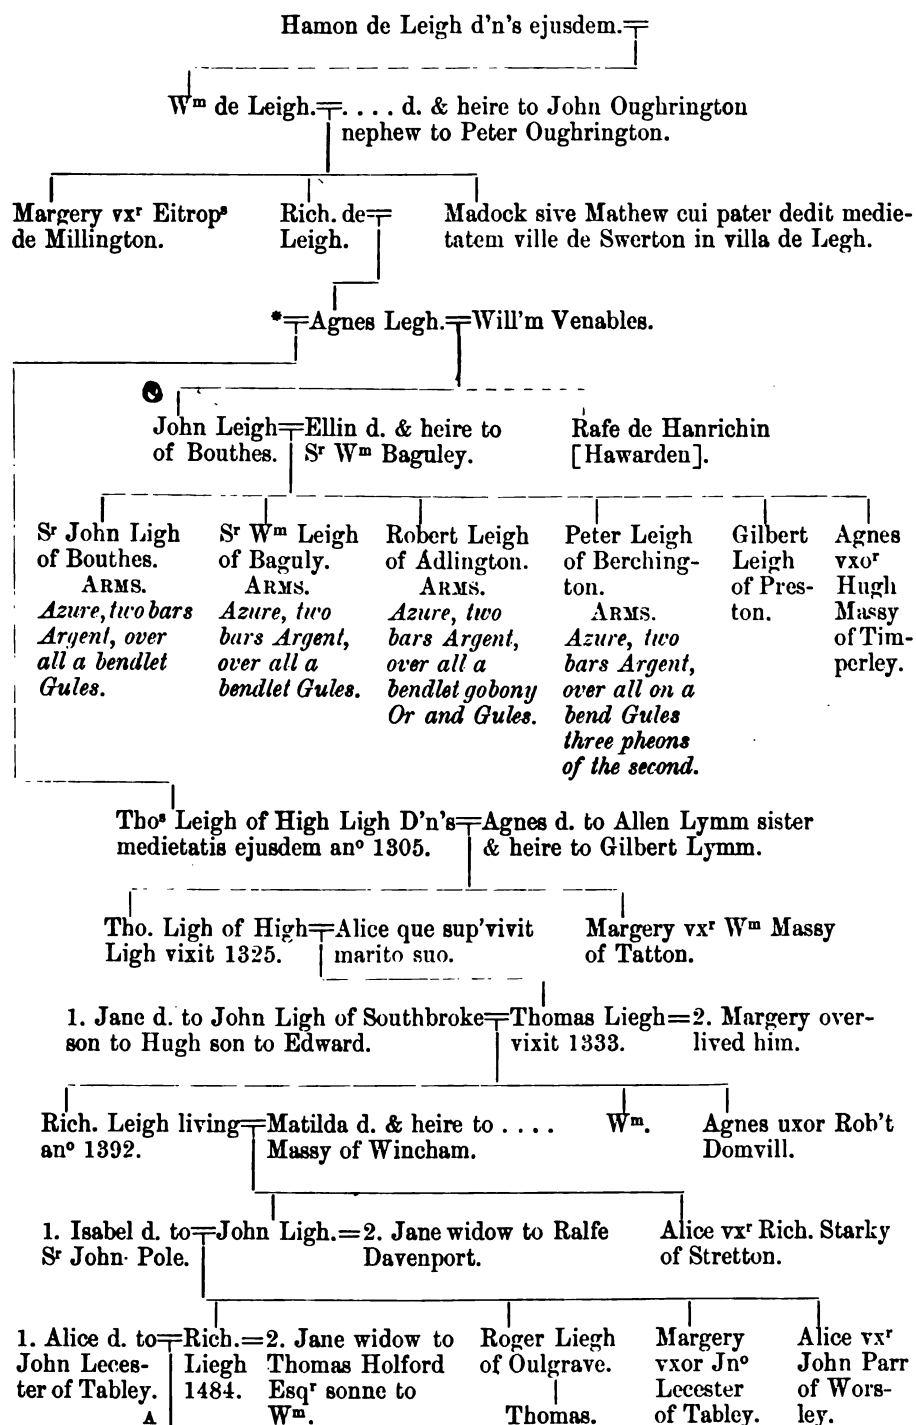 Hamon de Leigh d'n's ejusdem.
Wm de Leigh.
.... d. & heire to John Oughrington
nephew to Peter Oughrington.
Margery vxr Eitrops
de Millington.
Rich. de
Leigh.
Madock sive Mathew cui pater dedit medie-
tatem ville de Swerton in villa de Legh.
* Agnes Legh. Will'm Venables.
John Leigh
of Bouthes.
Ellin d. & heire to
Sr Wm Baguley.
Rafe de Hanrichin
[Hawarden].
Sr John Ligh
of Bouthes.
ARMS.
Azure, two bars
Argent, over
all a bendlet
Gules.
Sr Wm Leigh
of Baguly.
ARMS.
Azure, two
bars Argent,
over all a
bendlet Gules.
Robert Leigh
of Adlington.
ARMS.
Azure, two
bars Argent,
over all a
bendlet gobony
Or and Gules.
Peter Leigh
of Berching-
ton.
ARMS.
Azure, two
bars Argent,
over all on a
bend Gules
three pheons
of the second.
Gilbert
Leigh
of Pres-
ton.
Agnes
vxor
Hugh
Massy
of Tim-
perley.
Thos Leigh of High Ligh D'n's
medietatis ejusdem ano 1305.
Agnes d. to Allen Lymm sister
& heire to Gilbert Lymm.
Tho. Ligh of High
Ligh vixit 1325.
Alice que sup'vivit
marito suo.
Margery vxr Wm Massy
of Tatton.
1. Jane d. to John Ligh of Southbroke
son to Hugh son to Edward.
Thomas Liegh
vixit 1333.
=2. Margery over-
lived him.
Rich. Leigh living
ano 1392.
Matilda d. & heire to ....
Massy of Wincham.
Wm.
Agnes uxor Rob't
Domvill.
1. Isabel d. to
Sr John Pole.
John Ligh.
=2. Jane widow to Ralfe
Davenport.
Alice vxr Rich. Starky
of Stretton.
1. Alice d. to
John Leces-
ter of Tabley.
A
Rich.
Liegh
1484.
=2. Jane widow to
Thomas Holford
Esqr sonne to
Wm.
Roger Liegh
of Oulgrave.
Thomas.
Margery
vxor Jno
Lecester
of Tabley.
Alice vxr
John Parr
of Wors-
ley.